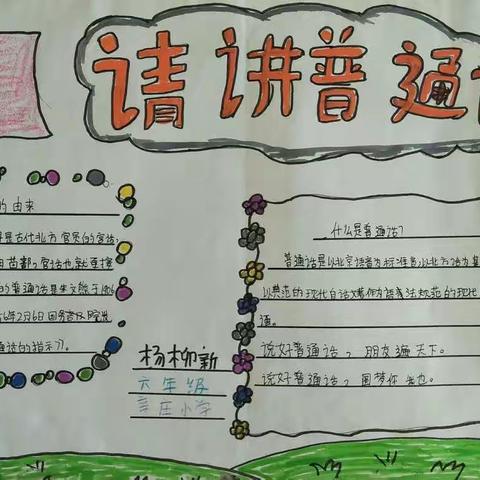 请讲普通话
的由来
是古代北方官员的官话,
的普通话是朱文熊于1906
56年2月6日国务院发
通话的指示》。
杨柳新
六年级
辛庄小学
什么是普通话?
普通话是以北京语音为标准音,以北方话为基
以典范的现代白话文著作为语法规范的现代
语。
说好普通话,朋友遍天下。
说好普通话,圆梦你 也。